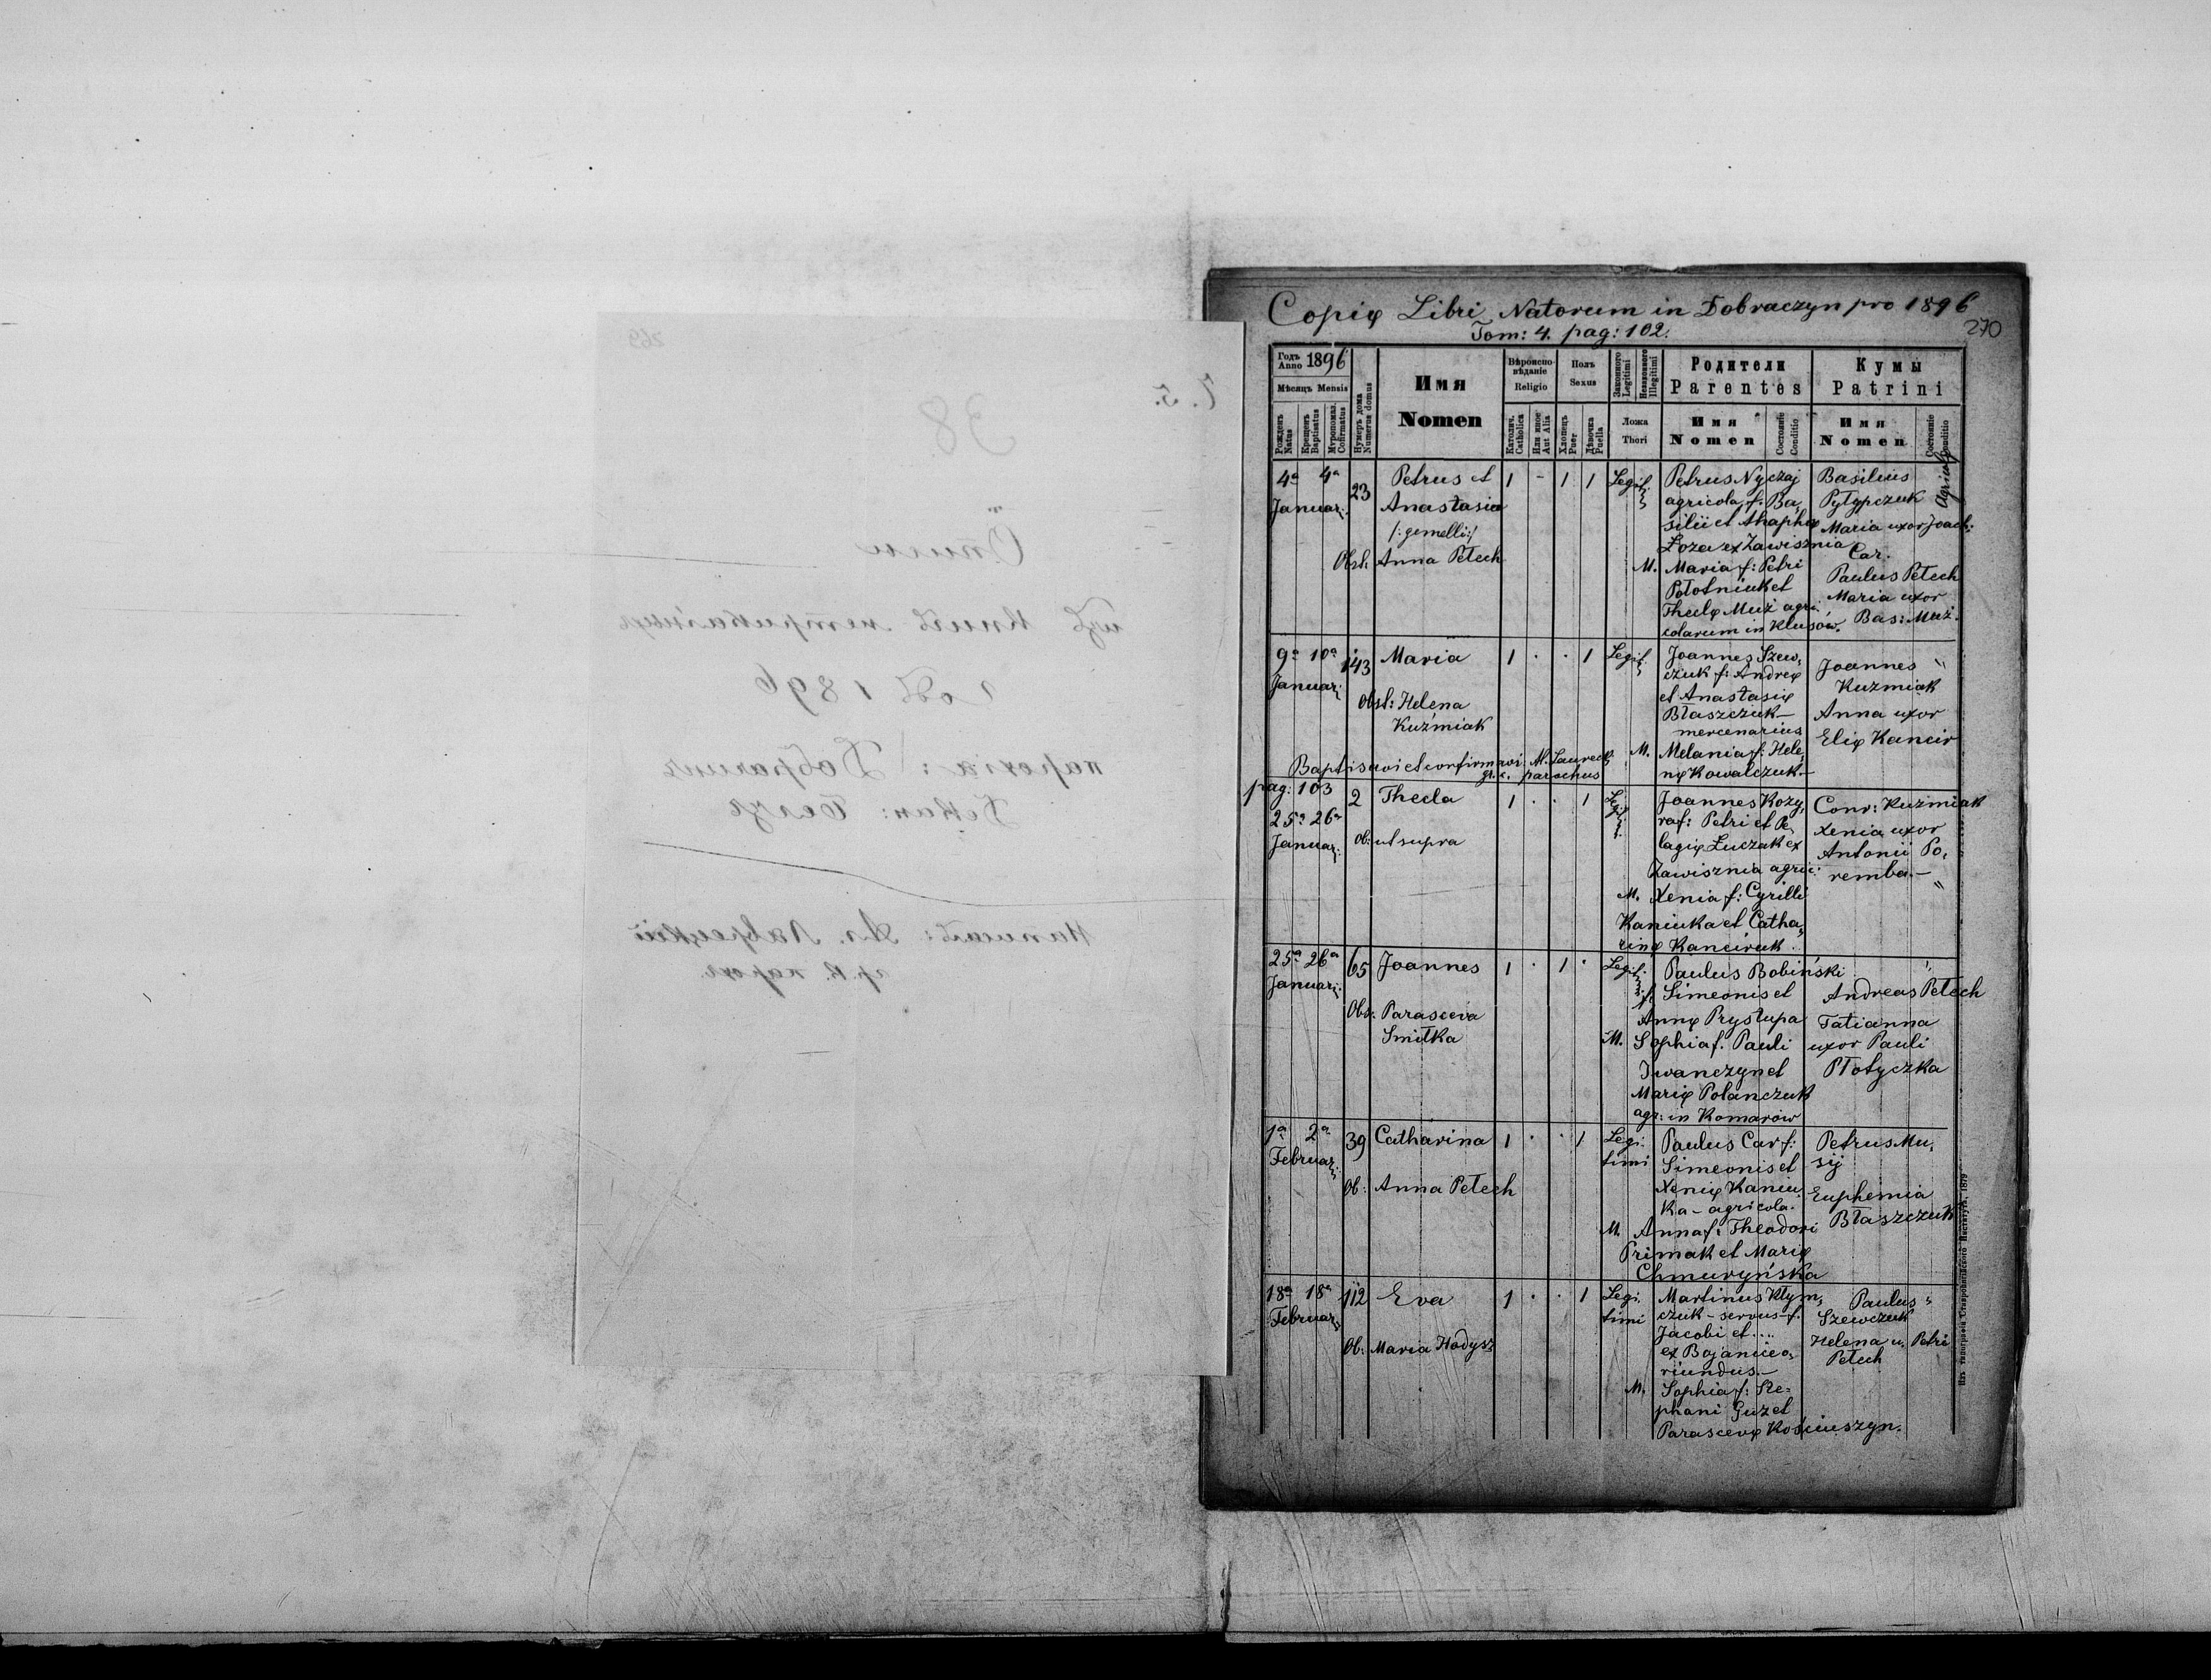 Copię Libri Natorum in Dobraczyn pro 1896
Tom: 4. pag: 102.
270
Годъ Anno 1896
Мѣсяцъ Mensis
Рожденъ Natus
Крещенъ Baptisatus
Муропомаз. Cofirmatus
Нумеръ дома Numerus domus
Имя Nomen
Вѣроисповѣданіе Religio
Католич. Catholica
Или иное Aut Alia
Полъ Sexus
Хлопецъ Puer
Дѣвочка Puella
Законного Legitimi
Незаконного Illegitimi
Ложа Thori
Родители Parentes
Имя Nomen
Состояніе Conditio
Кумы Patrini
Имя Nomen
Состояніе Conditio
4ª 4ª
Januar:
23
Petrus et
Anastasia
/:gemelli:/
Obst. Anna Petech
1 - 1 1
Legit.
Petrus Nyczaj
agricola f. Ba,
silii et Ahaphię
Łoza ex Zawisznia
M. Maria f: Petri
Połotniuk et
Theclę Muż agri,
colarum in Klusów.
Basilius
Pyłypczuk
Agricolę
Maria uxor Joach:
Car.
Paulus Petech
Maria uxor
Bas: Muż.
9ª 10ª
Januar:
143
Maria
Obst: Helena
Kuźmiak
1 . . 1
Legit.
Joannes Szew,
czuk f: Andreę
et Anastasię
Błaszczuk —
mercenarius
M. Melania f: Hele,
nę Kowalczuk —
Joannes "
Kuzmiak
Anna uxor
Elię Kancir
Baptisavi et confirmavi: Al. Laurecki
gr. c. parochus
pag: 103
25ª 26ª
Januar:
2
Thecla
Ob: ut supra
1 . . 1
Joannes Kozy,
ra f: Petri et Pe,
lagię Łuczak ex
Zawisznia agric:
M. Xenia f: Cyrilli
Kaniuka et Catha,
rinę Kanciruk.
Conr: Kuzmiak
Xenia uxor
Antonii Po,
remba. — "
25ª 26ª
Januar:
65
Joannes
Obs: Parasceva
Smitka
1 . 1 .
Legit.
Paulus Bobiński
f. Simeonis et
Annę Prystupa
M. Sophia f. Pauli
Iwanczyn et
Marię Polanczuk
agr: in Komarów
"
Andreas Petech
Tatianna
uxor Pauli
Płotyczka
1ª 2ª
Februar:
39
Catharina
Ob: Anna Petech
1 . . 1
Legi,
timi
Paulus Car f:
Simeonis et
Xenię Kaniu,
ka – agricola.
M. Anna f: Theodori
Primak et Marię
Chmuryńska
Petrus Mu,
sij
Euphemia
Błaszczuk
18ª 18ª
Februar:
112
Eva
Ob: Maria Hodysz
1 . . 1
Legi,
timi
Martinus Kłym,
czuk – servus – f.
Jacobi et ....
ex Bojanice o,
riundus. —
M. Sophia f: Ste=
phani Guz et
Parascevę Kościuszyn.
Paulus "
Szewczuk
Helena u. Petri
Petech
Изъ типографіи Ставропигійского Института, 1879
269
38
Описъ
изъ книгъ метрикальныхъ
1896
парохіа: Добрачинъ
Декан: Белзъ
Написалъ: Ал. Лаврецкій
гр. к. парохъ